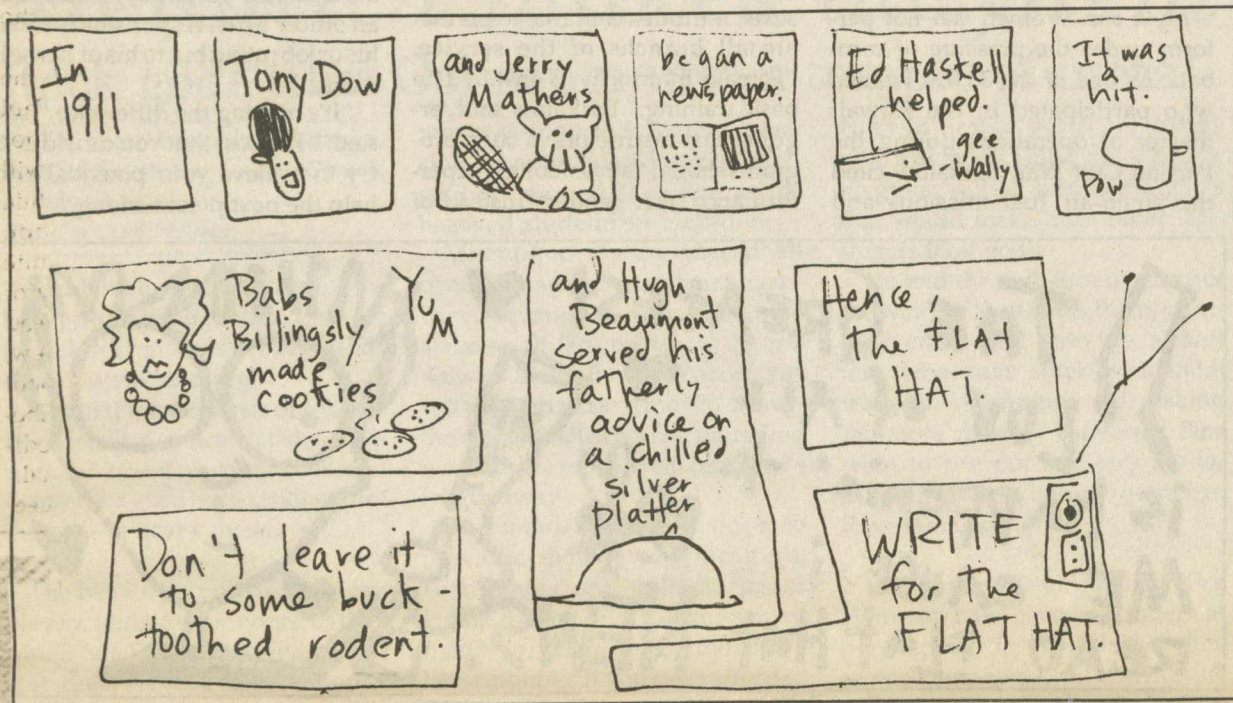 In
1911
Tony Dow
and Jerry
Mathers
began a
newspaper.
Ed Haskell
helped.
gee
Wally
It was
a
hit.
Pow
Babs
Billingsly
made
cookies
YUM
and Hugh
Beaumont
served his
fatherly
advice on
a chilled
silver
platter
Hence,
the FLAT
HAT
Don't leave it
to some buck-
toothed rodent.
WRITE
for the
FLAT HAT.